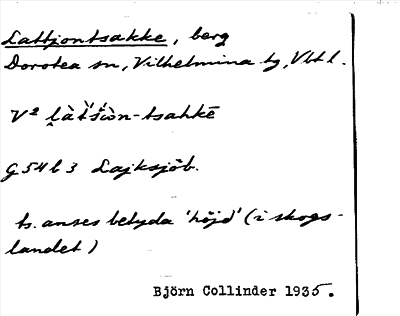 Lattjontsakke, berg
Dorotea sn, Vilhelmina tg, Vbtl.
V² l̯àt́'śiòn-tsahkē
G 54 b 3 Lajksjöb.
ts. anses betyda 'höjd' (i skogs-
landet)
Björn Collinder 1935.